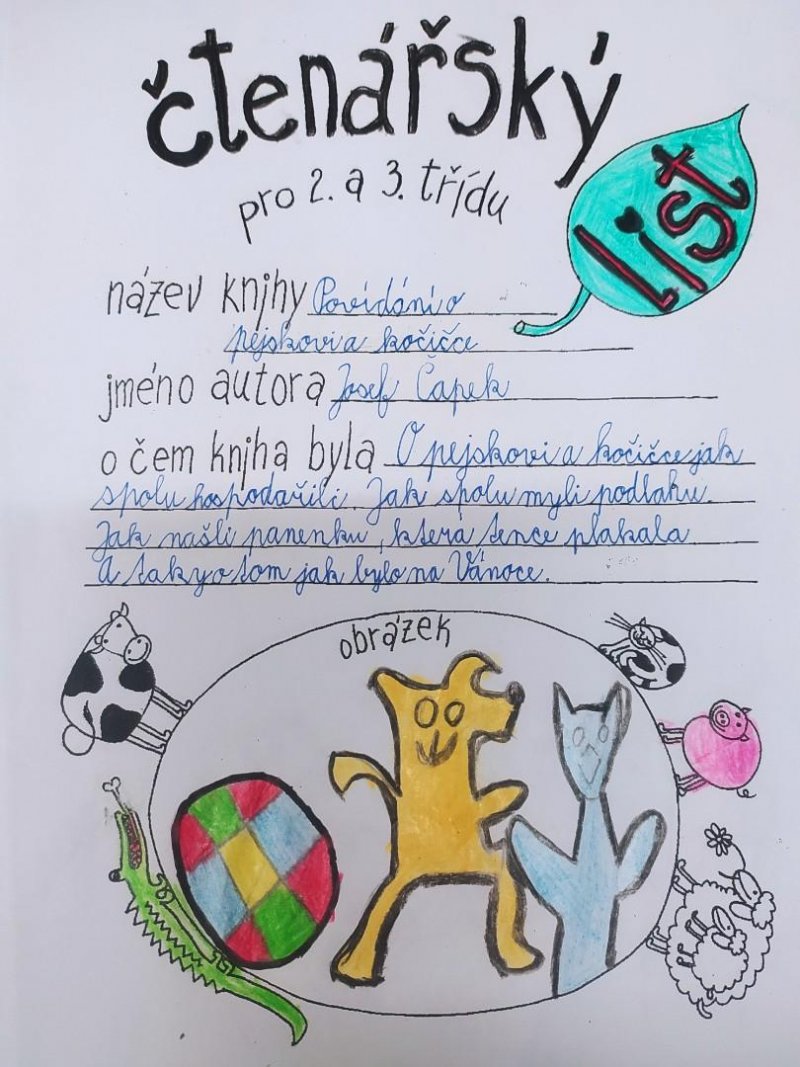 čtenářský
list
pro 2. a 3. třídu
název knihy Povídání o
pejskovi a kočičce
jméno autora Josef Čapek
o čem kniha byla O pejskovi a kočičce jak
spolu hospodařili. Jak spolu myli podlahu.
Jak našli panenku, která tence plakala
A taky o tom jak bylo na Vánoce.
obrázek